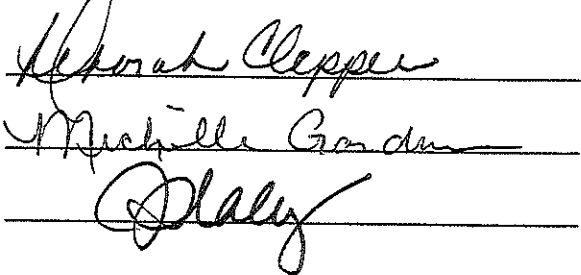 Deborah Clepper
Michelle Gardner